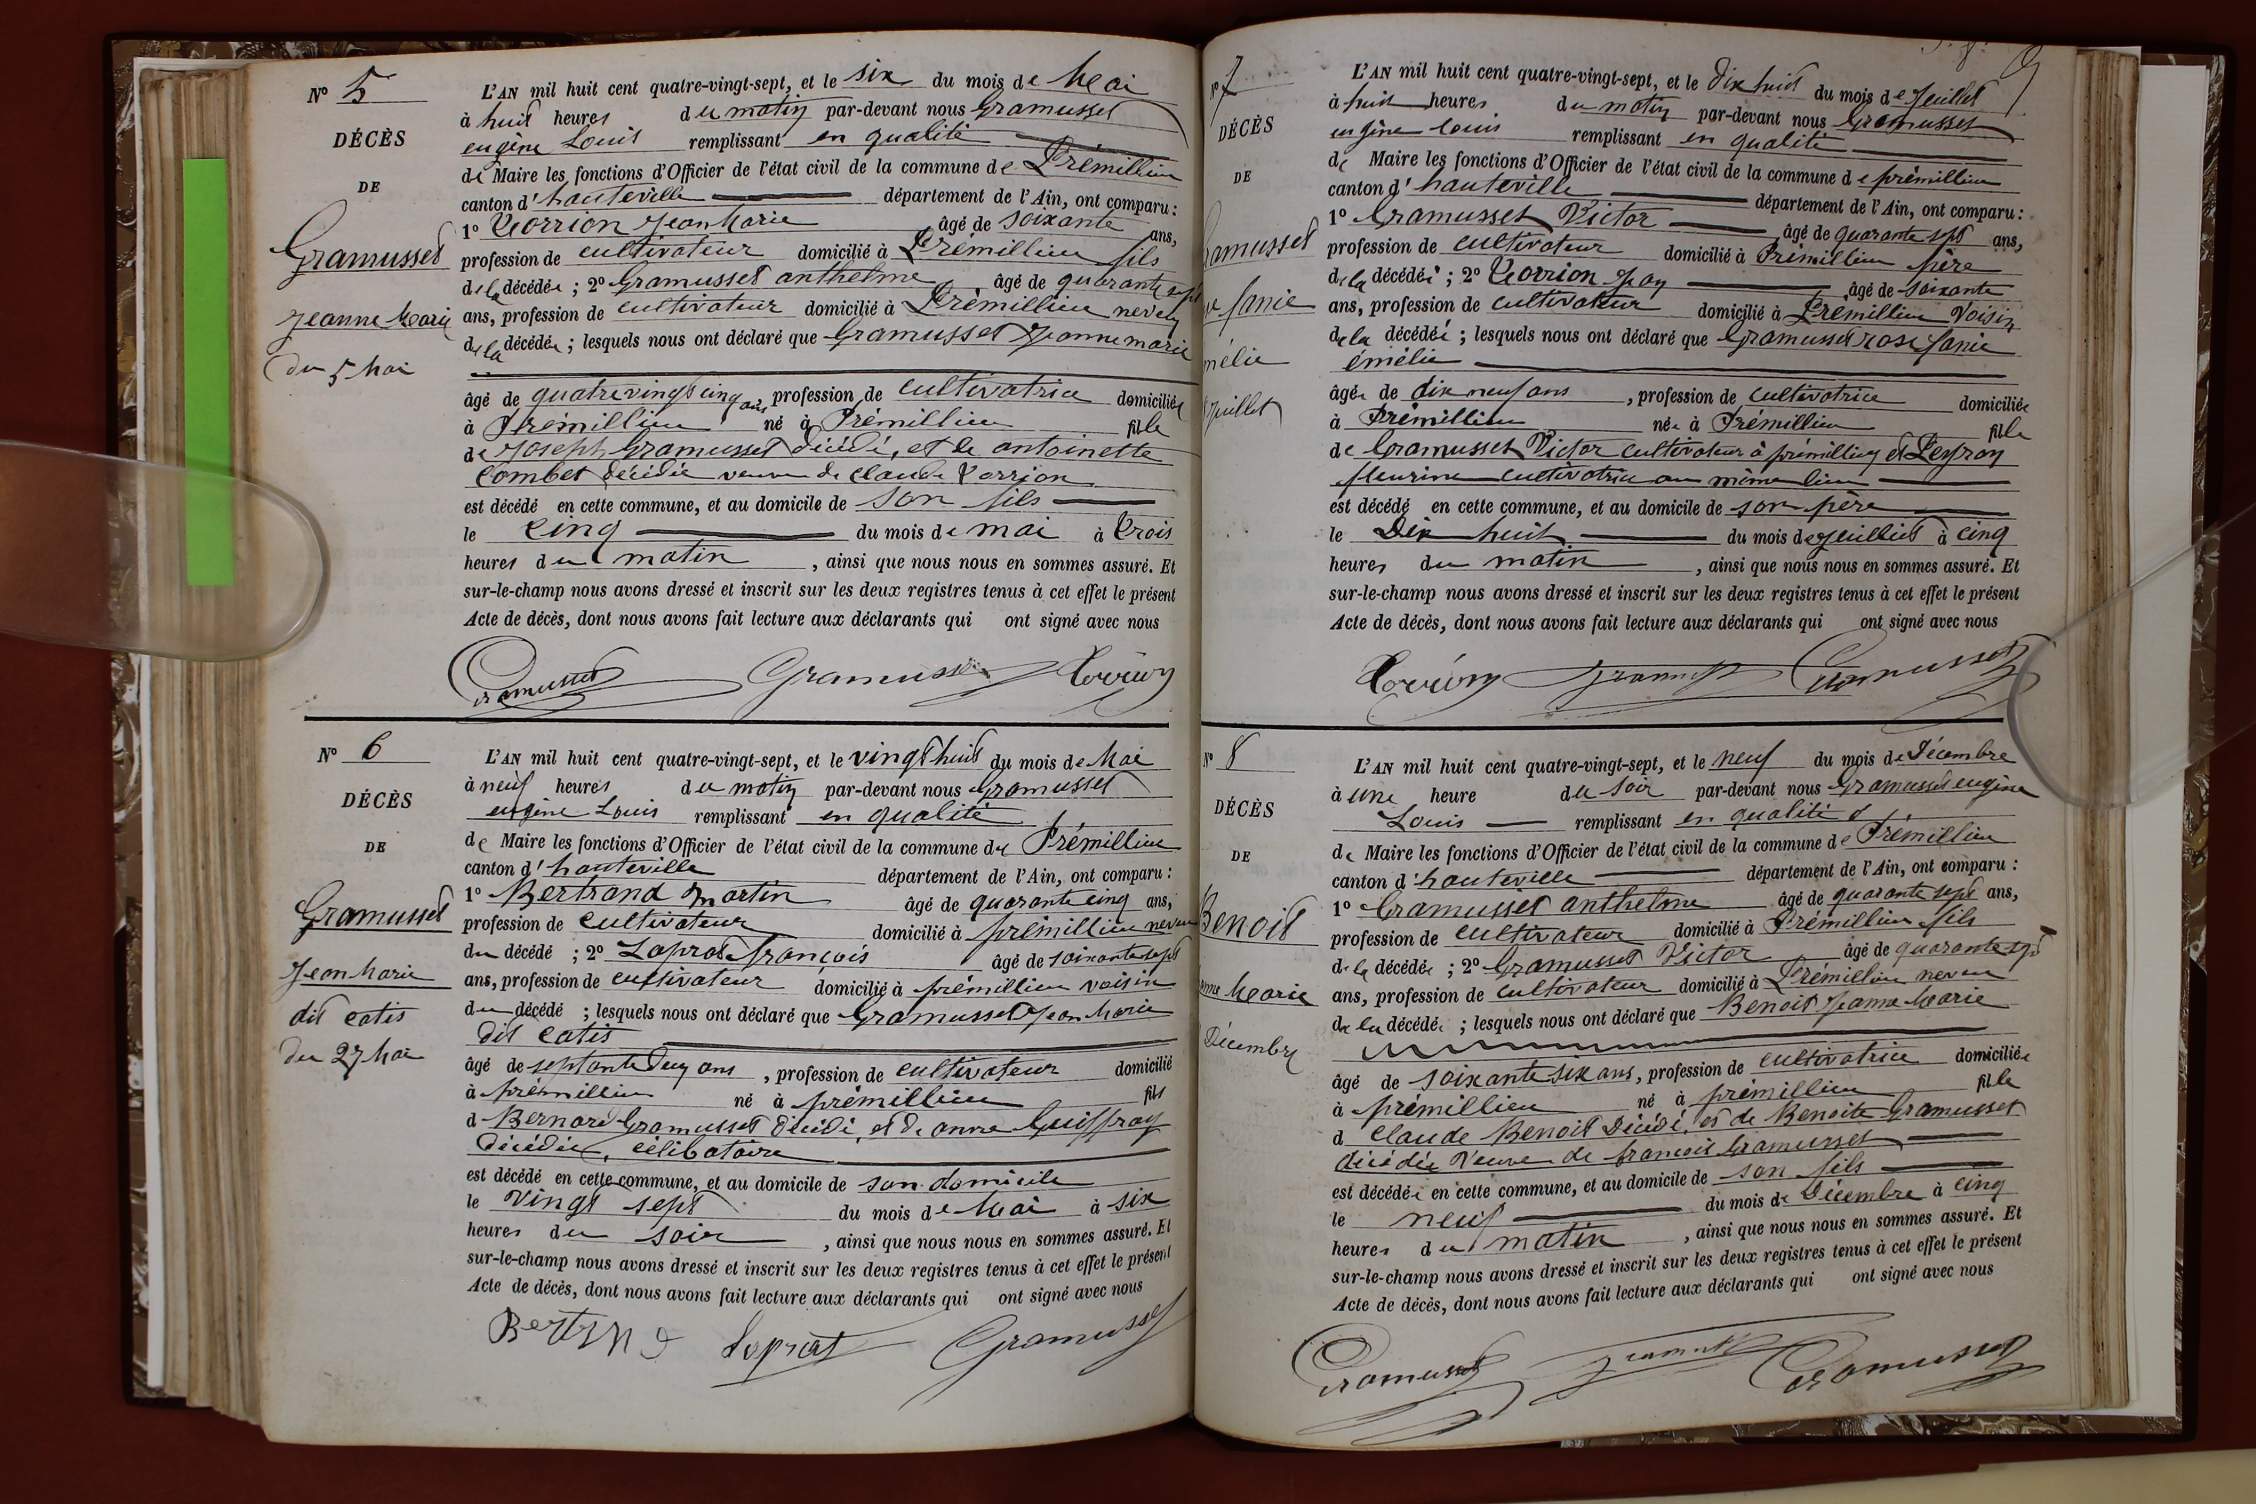 N° 5
DÉCÈS
DE
Gramusset
Jeanne Marie
du 5 Mai
L'AN mil huit cent quatre-vingt-sept, et le six du mois de Mai
à huit heures du matin par-devant nous Gramusset
eugène Louis remplissant en qualité
de Maire les fonctions d'Officier de l'état civil de la commune de Prémillieu
canton d'hauteville département de l'Ain, ont comparu :
1° Vorrion Jean Marie âgé de soixante ans,
profession de cultivateur domicilié à Prémillieu fils
de la décédée ; 2° Gramusset anthelme âgé de quarante sept
ans, profession de cultivateur domicilié à Prémillieu neveu
de la décédée ; lesquels nous ont déclaré que Gramusset Jeanne marie
âgé de quatre vingt cinq ans, profession de cultivatrice domiciliée
à Prémillieu né à Prémillieu fille
de Joseph Gramusset décédé, et de antoinette
Combet décédée veuve de claude Vorrion
est décédé en cette commune, et au domicile de son fils
le cinq du mois de mai à trois
heures du matin, ainsi que nous nous en sommes assuré. Et
sur-le-champ nous avons dressé et inscrit sur les deux registres tenus à cet effet le présent
Acte de décès, dont nous avons fait lecture aux déclarants qui ont signé avec nous
Gramusset Gramusset Vorrion
N° 6
DÉCÈS
DE
Gramusset
Jean Marie
dit catis
du 27 Mai
L'AN mil huit cent quatre-vingt-sept, et le vingt huit du mois de Mai
à neuf heures du matin par-devant nous Gramusset
eugène Louis remplissant en qualité
de Maire les fonctions d'Officier de l'état civil de la commune de Prémillieu
canton d'hauteville département de l'Ain, ont comparu :
1° Bertrand Martin âgé de quarante cinq ans,
profession de cultivateur domicilié à prémillieu neveu
du décédé ; 2° Laprat françois âgé de soixante sept
ans, profession de cultivateur domicilié à prémillieu voisin
du décédé ; lesquels nous ont déclaré que Gramusset Jean Marie
dit catis
âgé de septante deux ans, profession de cultivateur domicilié
à prémillieu né à prémillieu fils
d Bernard Gramusset décédé, et de anne Guiffray
décédée, célibataire
est décédé en cette commune, et au domicile de son domicile
le vingt sept du mois de Mai à six
heures du soir, ainsi que nous nous en sommes assuré. Et
sur-le-champ nous avons dressé et inscrit sur les deux registres tenus à cet effet le présent
Acte de décès, dont nous avons fait lecture aux déclarants qui ont signé avec nous
Bertrand Laprat Gramusset
N° 7
DÉCÈS
DE
ramusset
fanie
mélie
Juillet
L'AN mil huit cent quatre-vingt-sept, et le Dix huit du mois de Juillet
à huit heures du matin par-devant nous Gramusset
eugène louis remplissant en qualité
de Maire les fonctions d'Officier de l'état civil de la commune de prémillieu
canton d'hauteville département de l'Ain, ont comparu :
1° Gramusset Victor âgé de quarante sept ans,
profession de cultivateur domicilié à Prémillieu père
de la décédée ; 2° Vorrion Jean âgé de soixante
ans, profession de cultivateur domicilié à Prémillieu Voisin
de la décédée ; lesquels nous ont déclaré que Gramusset rose fanie
émélie
âgée de dix neuf ans, profession de cultivatrice domiciliée
à Prémillieu née à Prémillieu fille
de Gramusset Victor cultivateur à prémillieu et Peyron
fleurine cultivatrice au même lieu
est décédé en cette commune, et au domicile de son père
le Dix huit du mois de Juillet à cinq
heures du matin, ainsi que nous nous en sommes assuré. Et
sur-le-champ nous avons dressé et inscrit sur les deux registres tenus à cet effet le présent
Acte de décès, dont nous avons fait lecture aux déclarants qui ont signé avec nous
Vorrion Gramusset Gramusset
N° 8
DÉCÈS
DE
Benoit
Marie
Décembre
L'AN mil huit cent quatre-vingt-sept, et le neuf du mois de Décembre
à une heure du soir par-devant nous Gramusset eugène
Louis remplissant en qualité
de Maire les fonctions d'Officier de l'état civil de la commune de Prémillieu
canton d'hauteville département de l'Ain, ont comparu :
1° Gramusset anthelme âgé de quarante sept ans,
profession de cultivateur domicilié à Prémillieu fils
de la décédée ; 2° Gramusset Victor âgé de quarante sept
ans, profession de cultivateur domicilié à Prémillieu neveu
de la décédée ; lesquels nous ont déclaré que Benoit Jeanne Marie
âgé de soixante six ans, profession de cultivatrice domiciliée
à prémillieu né à prémillieu fille
d claude Benoit décédé, et de Benoite Gramusset
décédée Veuve de francois Gramusset
est décédée en cette commune, et au domicile de son fils
le neuf du mois de Décembre à cinq
heures du matin, ainsi que nous nous en sommes assuré. Et
sur-le-champ nous avons dressé et inscrit sur les deux registres tenus à cet effet le présent
Acte de décès, dont nous avons fait lecture aux déclarants qui ont signé avec nous
Gramusset Gramusset Gramusset